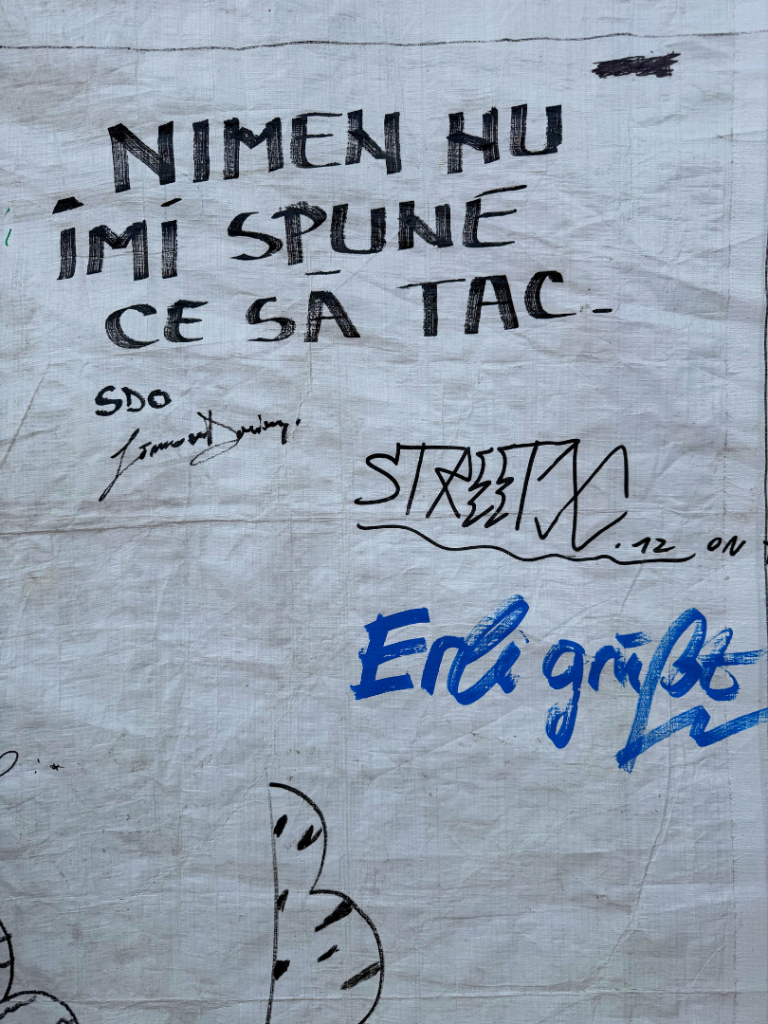 NIMEN NU
ÎMI SPUNE
CE SĂ TAC.
SDO
STREET
.12 ON
Erli grüßt